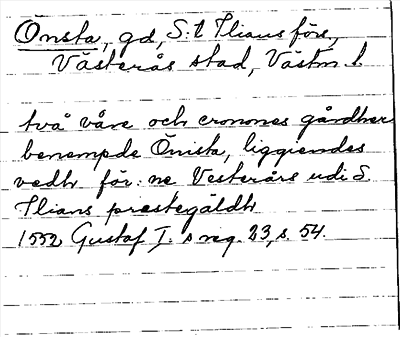 Önsta, gd, S:t Ilians förs,
Västerås stad, Västm. l.
två våre och cronones gårdher
benempde Önista, liggiendes
vedh för:ne Vesterårs udi S.
Ilians prestegäldh
1552 Gustaf I:s reg. 23, s. 54.